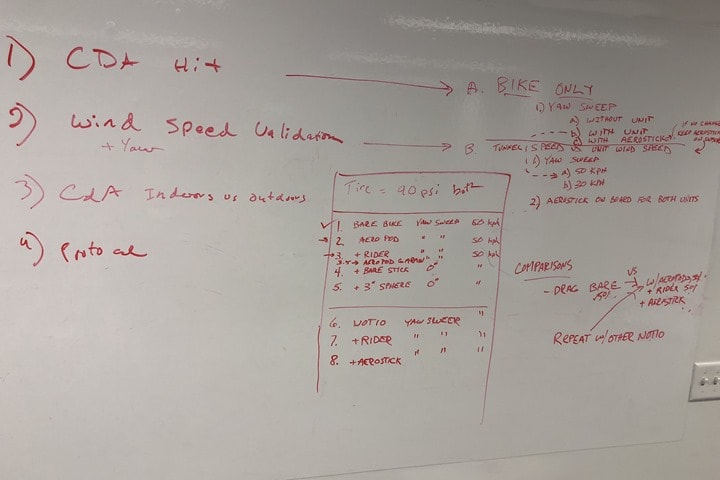 1) CDA Hit
2) Wind Speed Validation
+ Yaw
3) CdA Indoors vs Outdoors
4) Protocal
A. BIKE ONLY
1) YAW SWEEP
a) WITHOUT UNIT
b) WITH UNIT
c) WITH AEROSTICK
IF NO CHANGE
KEEP AEROSTICK
ON
B TUNNEL SPEED VS UNIT WIND SPEED
1) YAW SWEEP
a) 50 KPH
b) 30 KPH
2) AEROSTICK ON BOARD FOR BOTH UNITS
Tire = 90 psi both
1. BARE BIKE YAW SWEEP 50 kph
2. AERO POD " " 50 kph
3. + RIDER " " 50 kph
AEROPOD GARMIN " "
4. + BARE STICK 0° "
5. + 3" SPHERE 0° "
6. NOTIO YAW SWEEP "
7. + RIDER " " "
8. + AEROSTICK " " "
COMPARISONS
- DRAG BARE VS W/AEROPOD
50/
+ RIDER 50/
+ AEROSTICK
REPEAT W/ OTHER NOTIO